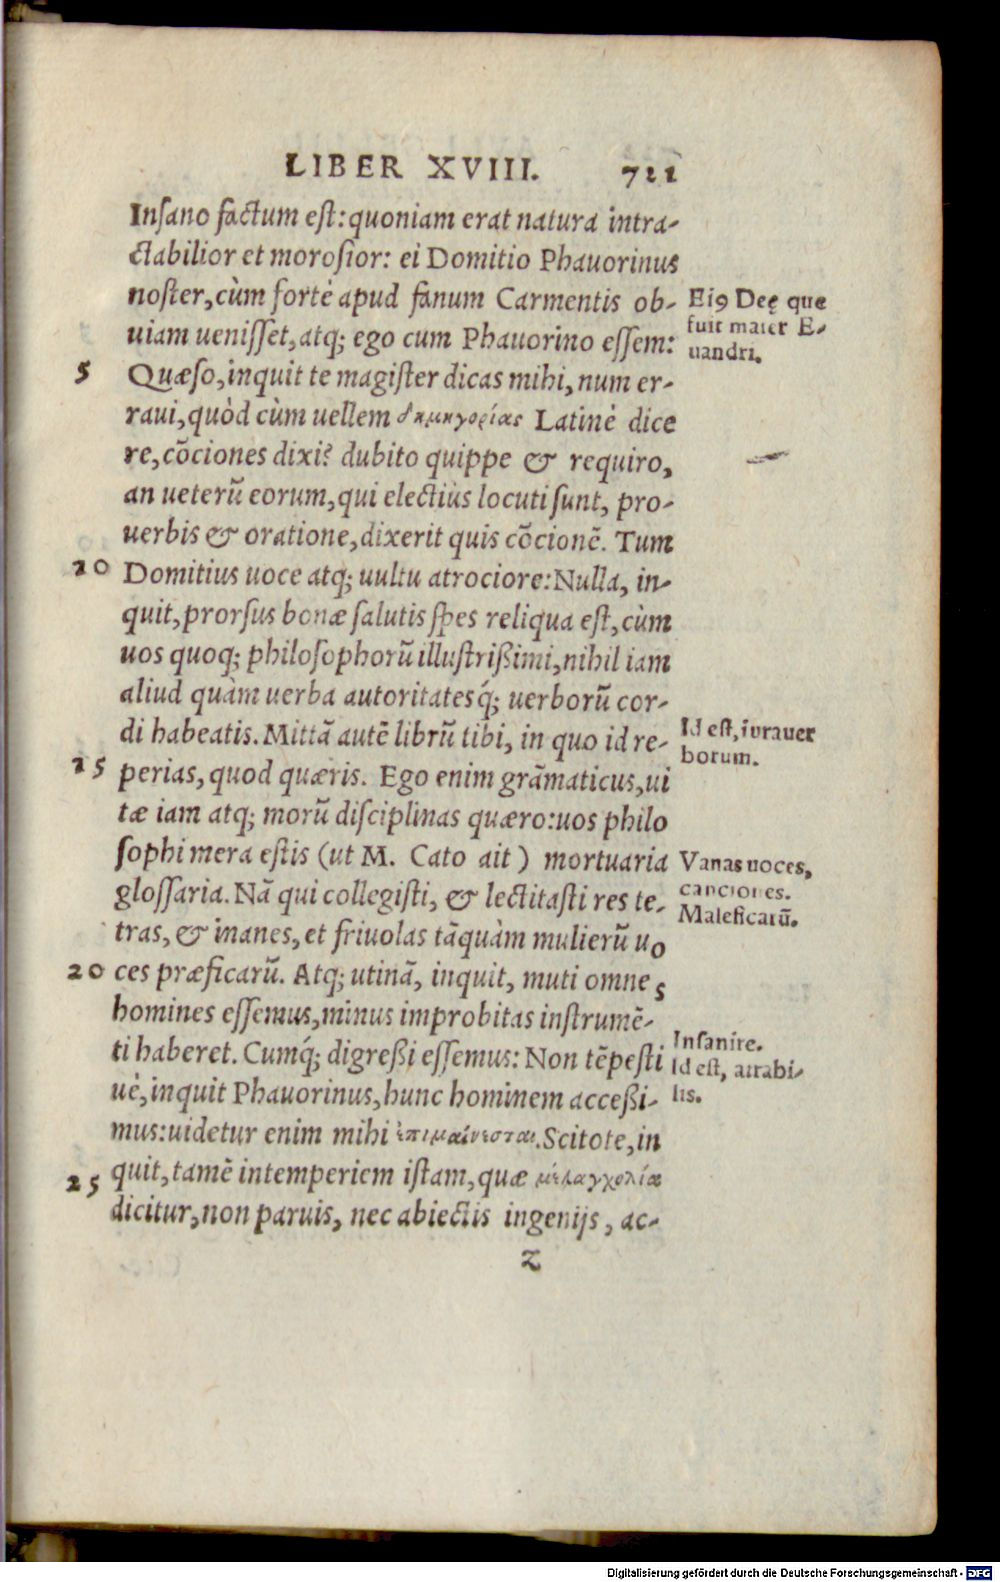 LIBER XVIII. 711
Inſano factum eſt: quoniam erat natura intra-
ctabilior et moroſior: ei Domitio Phauorinus
noſter, cùm fortè apud fanum Carmentis ob-
uiam ueniſſet, atq; ego cum Phauorino eſſem:
5 Quæſo, inquit te magiſter dicas mihi, num er-
raui, quòd cùm uellem δημηγορίας Latinè dice
re, cōciones dixi? dubito quippe & requiro,
an ueterū eorum, qui electiùs locuti ſunt, pro-
uerbis & oratione, dixerit quis cōcionē. Tum
10 Domitius uoce atq; uultu atrociore: Nulla, in-
quit, prorſus bonæ ſalutis ſpes reliqua eſt, cùm
uos quoq; philoſophorū illuſtrißimi, nihil iam
aliud quàm uerba autoritatesq́; uerborū cor-
di habeatis. Mittā autē librū tibi, in quo id re-
15 perias, quod quæris. Ego enim grāmaticus, ui
tæ iam atq; morū diſciplinas quæro: uos philo
ſophi mera eſtis (ut M. Cato ait) mortuaria
gloſſaria. Nā qui collegiſti, & lectitaſti res te-
tras, & inanes, et friuolas tāquàm mulierū uo
20 ces præficarū. Atq; utinā, inquit, muti omnes
homines eſſemus, minus improbitas inſtrumē-
ti haberet. Cumq́; digreßi eſſemus: Non tēpeſti
uè, inquit Phauorinus, hunc hominem acceßi-
mus: uidetur enim mihi ἐπιμαίνεσται. Scitote, in
quit, tamē intemperiem iſtam, quæ μελαγχολία
25 dicitur, non paruis, nec abiectis ingenijs, ac-
Z
Eiꝰ Deę que
fuit mater E-
uandri.
Id eſt, iura uer
borum.
Vanas uoces,
canciones.
Maleficarū.
Inſanire.
Id eſt, atrabi-
lis.
Digitalisierung gefördert durch die Deutsche Forschungsgemeinschaft - DFG